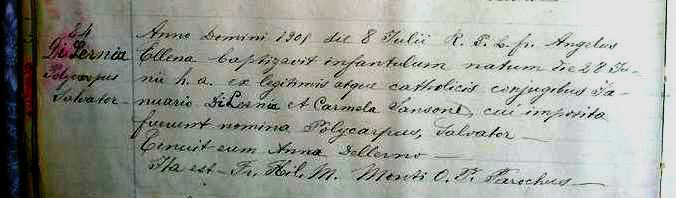 84
Di Lernia
Polycarpus
Salvator -
Anno Domini 1901 die 8 Julii R. P. L. fr. Angelus
Ellena baptizavit infantulum natum die 28 Ju-
nii h. a. ex legitimis atque catholicis conjugibus Ja-
nuario DiLernia et Carmela Sansone, cui imposita
fuerunt nomina Polycarpus, Salvator -
Tenuit eum Anna Dellerno -
Ita est - Fr. Hil. M. Monti O. P. Parochus -